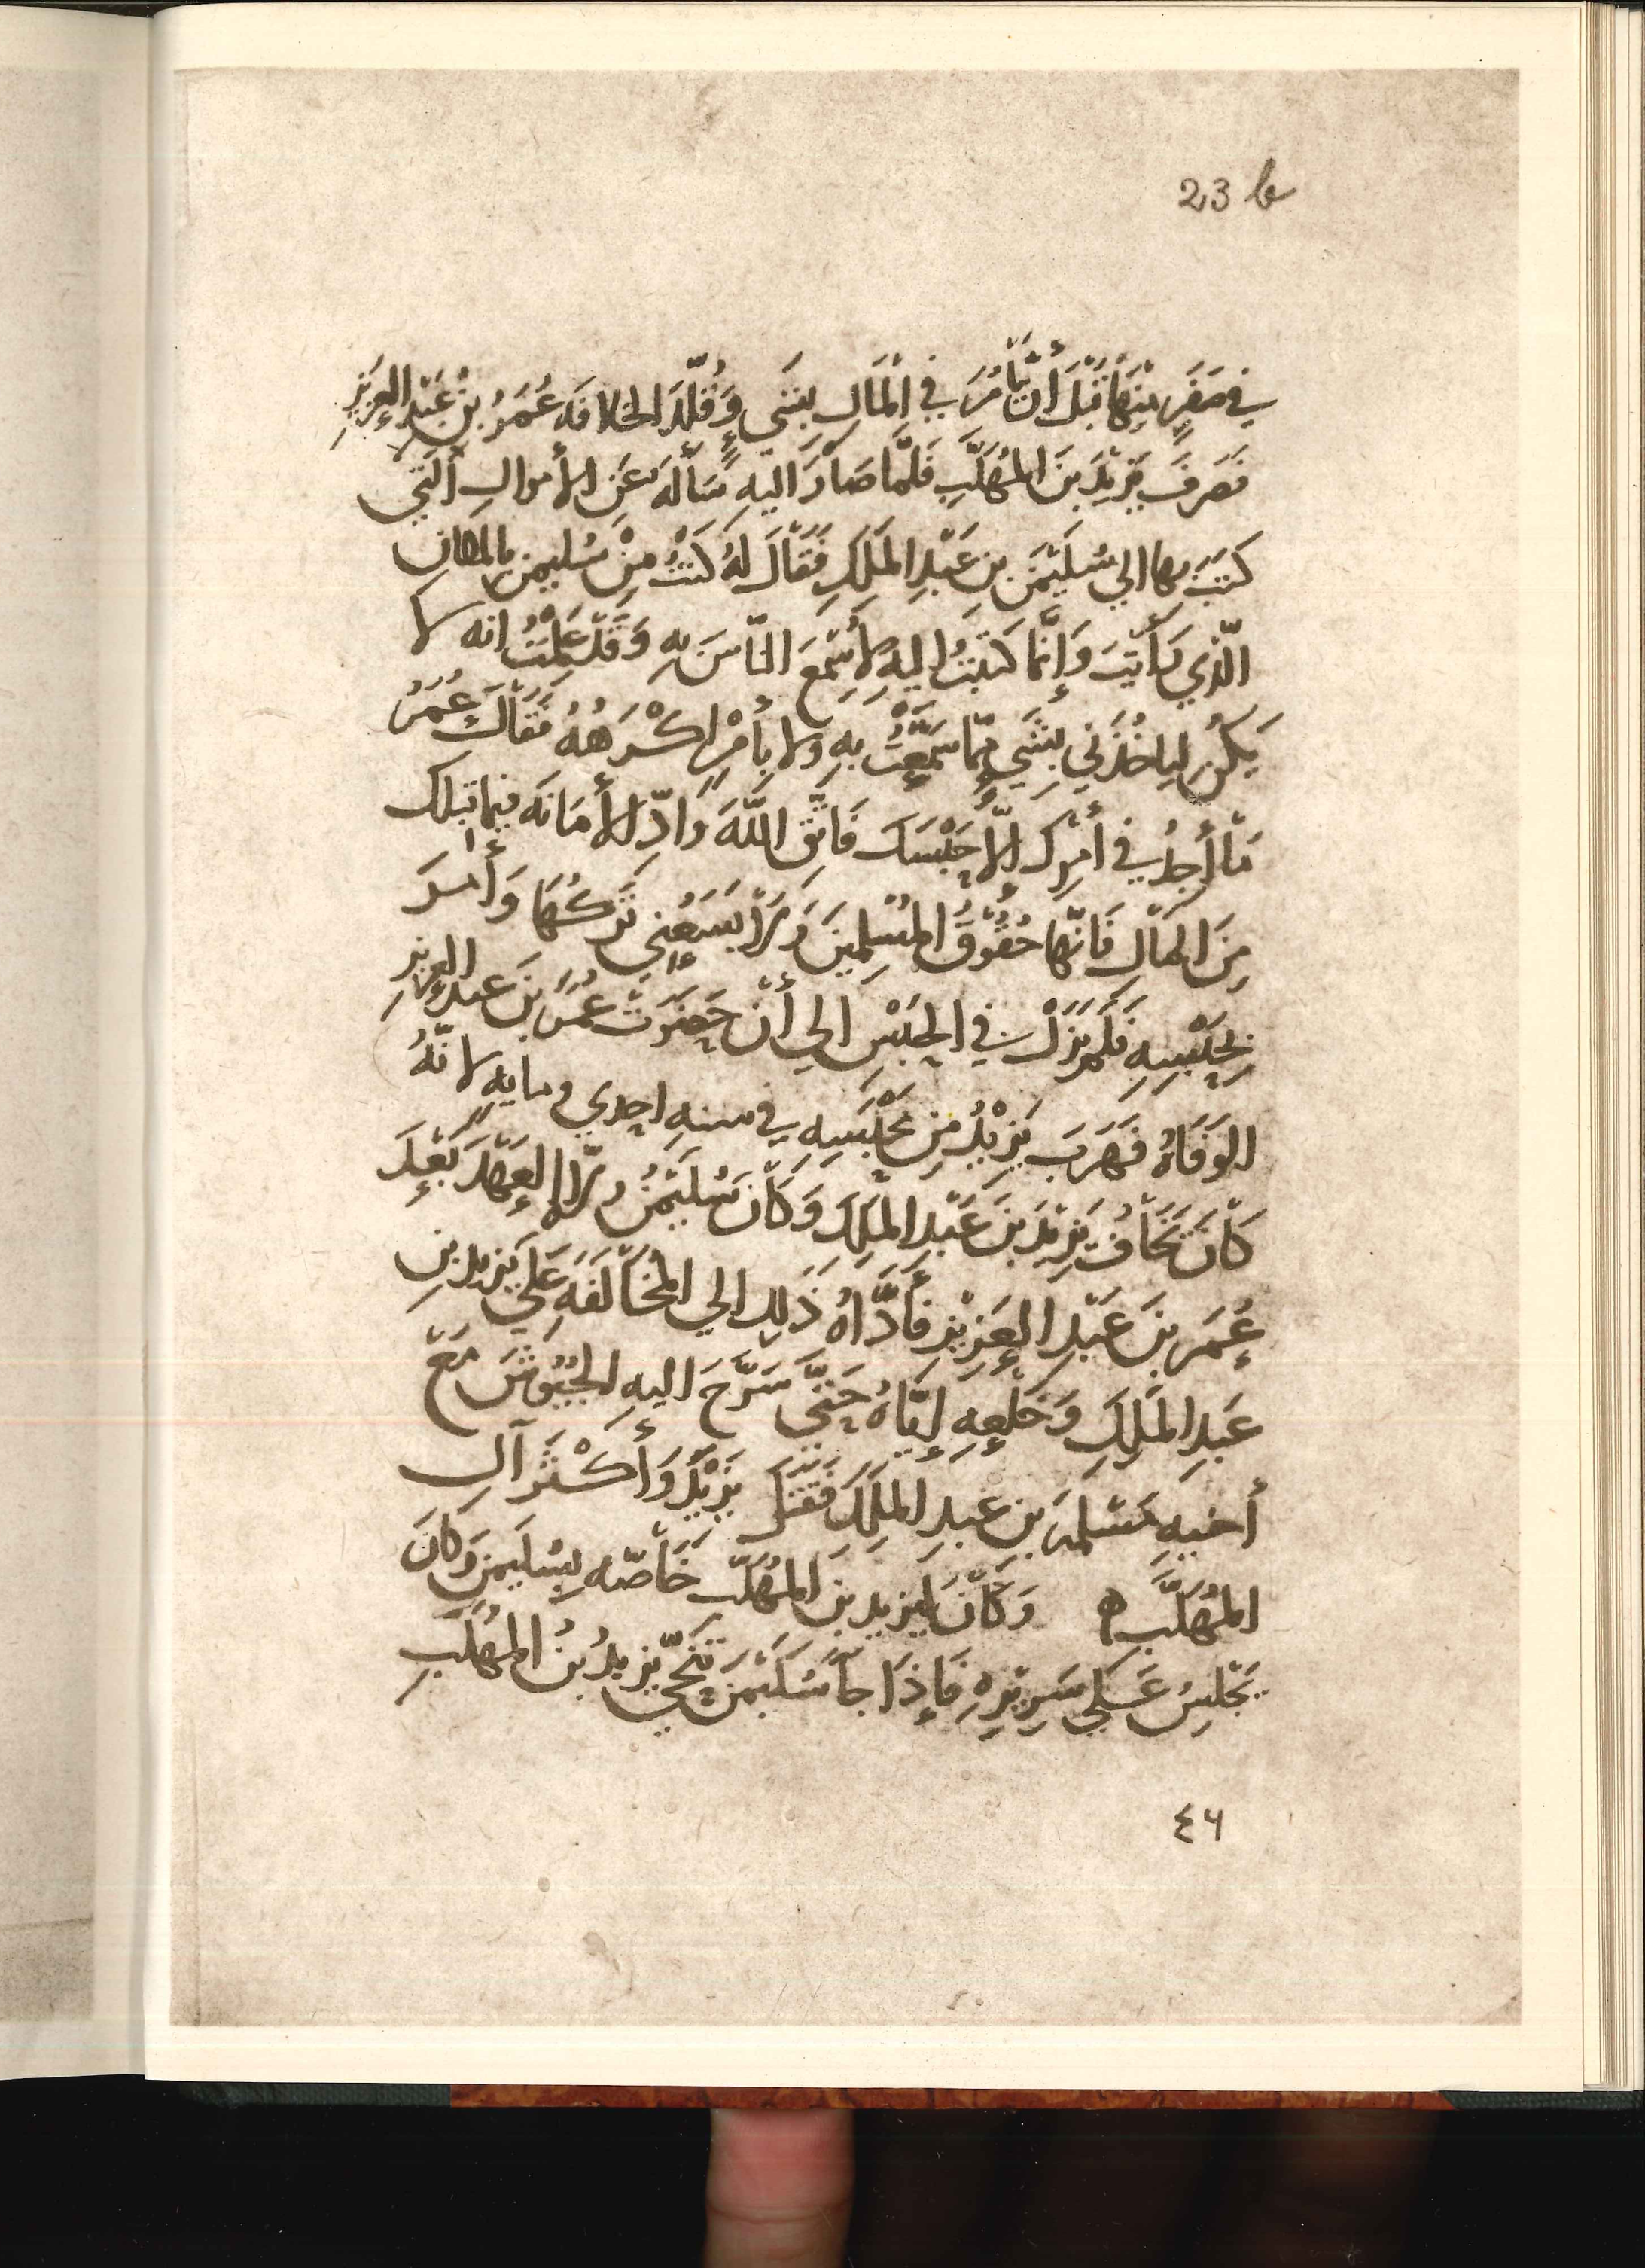 23 b
في صفر منها قَبْلَ أَن يَأْمُرَ في المَالِ بِشَيءٍ وَقُلِّدَ الخلافَه عُمَرُ بنُ عَبْدِ العَزِيزِ
فَصَرفَ يَزِيْدَ بنَ المُهَلَّبِ فَلَمَّا صَارَ اليهِ سَأَلَهُ عَنِ الأَموالِ الَّتي
كَتَبَ بها الي سُلَيْمٰنَ بنِ عَبْدِ المَلِكِ فَقَالَ لهُ كنتُ مِنْ سُليمٰن بالمكانِ
الَّذي رَأَيتَ وَإِنَّما كتبتُ إليهِ لِأُسْمِعَ النَّاسَ بِهِ وَقَدْ عَلِمْتُ انه لا
يَكُن لياخُذَني بِشَيءٍ مِمّا سَمَّعْتُ بهِ ولا بِأَمْرٍ اكْرَهُهُ فَقَالَ عُمَرُ
مَا أَجِدُ في أَمْرِكَ إلّا حَبْسَكَ فَاتَّقِ اللّٰهَ وَادِّ الأَمَانَه فيما قبلك
مِنَ المَالِ فَانَّها حُقُوْقُ المُسْلِمينَ وَلَا يَسَعُنِي تَرْكُهَا وَأَمَرَ
بِحَبْسِهِ فَلَم يَزَلْ في الحَبْسِ الي أَنْ حَضَرَتْ عُمَرَ بنَ عبد العزيزِ
الوَفَاةُ فَهَرَبَ يَزِيْدُ مِن مَحْبِسِهِ في سنهِ احدي ومايهٍ لانَّهُ
كَانَ يَخَافُ يَزِيْدَ بنَ عَبْدِ المَلِكِ وَكَانَ سُلَيْمٰنُ ولّاهُ العَهْدَ بَعْدَ
عُمَرَ بنَ عَبْدِ العَزِيْزِ فَأَدَّاهُ ذَلِكَ الي المُخَالَفَهِ عَلَي يَزِيد بنِ
عَبدِ المَلِكِ وَخَلْعِهِ إيَّاهُ حَتَّي سَرَّحَ اليهِ الجُيُوْشَ مَعَ
أَخيهِ مَسْلمهَ بن عبدِ المَلِكِ فَقَتَلَ يَزِيْدَ وَأَكْثَرَ آلِ
المُهَلَّبِ ه وَكَانَ لِيَزيد بنِ المُهَلَّب خَاصّه بِسُليمٰنَ وَكانَ
يَجْلِسُ عَلي سَرِيْرِهِ فَإِذَا جَا سُلَيْمٰنَ تَنَحَّي يَزيدُ بنُ المُهلَّبِ
٤٦